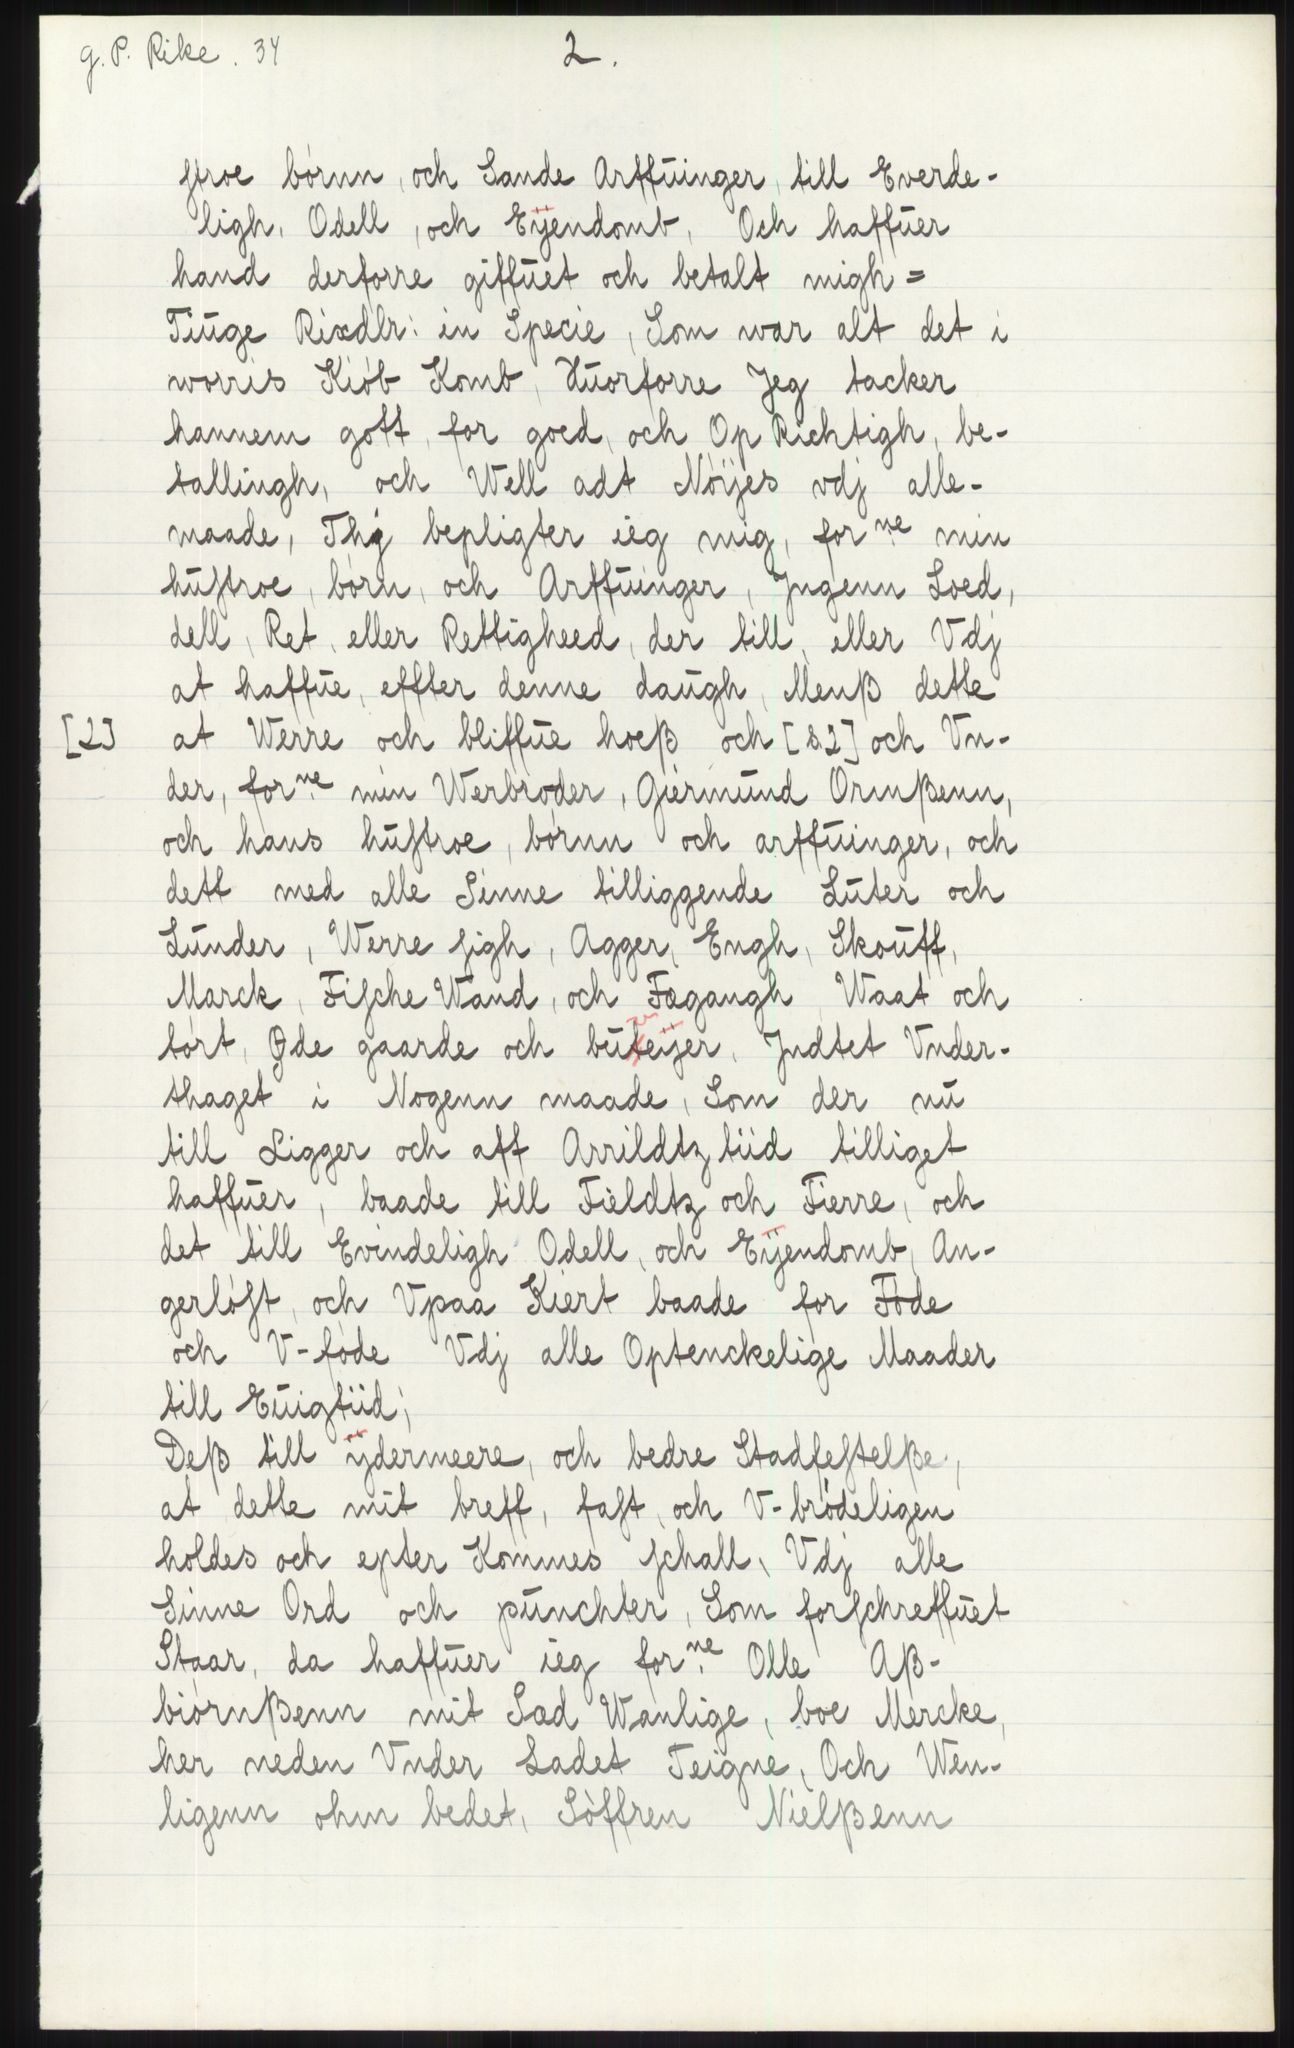 G. P. Rike. 34
2.
ſtroe børnn, och Sande Arffuinger, till Everde-
ligh, Odell, och Eÿendomb, Och haffuer
hand derforre giffuet och betalt migh =
Tiuge Rixdlr: in Specie, Som war alt det i
worris Kiøb Komb, Huorforre Jeg tacker
hannem gott, for goed, och Op Richtigh, be-
tallingh, och Well adt Nøijes vdj alle-
maade, Thj bepligter ieg mig, forne min
huſtroe, børn, och Arffuinger, Jngenn Loed,
dell, Ret, eller Rettigheed, der till, eller Vdj
at haffue, effter denne daugh, Menß dette
[2] at Werre och bliffue hoeß och [S.2] och Vn-
der, forne min Werbroder, Giermund Ormßenn,
och hans huſtroe, børnn och arffuinger, och
dett med alle Sinne tilliggende Luter och
Lunder, Werre ſigh, Agger, Engh, Skouff,
Marck, Fiſche Wand, och Fægangh Waat och
tørt, Øde gaarde och buteÿer, Jndtet Vnder-
thaget i Nogenn maade, Som der nu
till Ligger och aff Arrildtz tiid tilliget
haffuer, baade till Fieldtz och Fierre, och
det till Evindeligh Odell, och Eÿendomb, An-
gerløſt, och Vpaa Kiert baade for Føde
och V-føde Vdj alle Optenckelige Maader
till Euigtiid;
Deß till ÿdermeere, och bedre Stadfeſtelße,
at dette mit breff, faſt, och V-brødeligen
holdes och epter Kommes ſchall, Vdj alle
Sinne Ord och punchter, Som forſchreffuet
Staar, da haffuer ieg forne Olle Aß-
biørnßenn mit Sæd Wanlige, boe Mercke,
her neden Vnder Ladet Teigne, Och Wen-
ligenn ohm bedet, Søffren Nielßenn